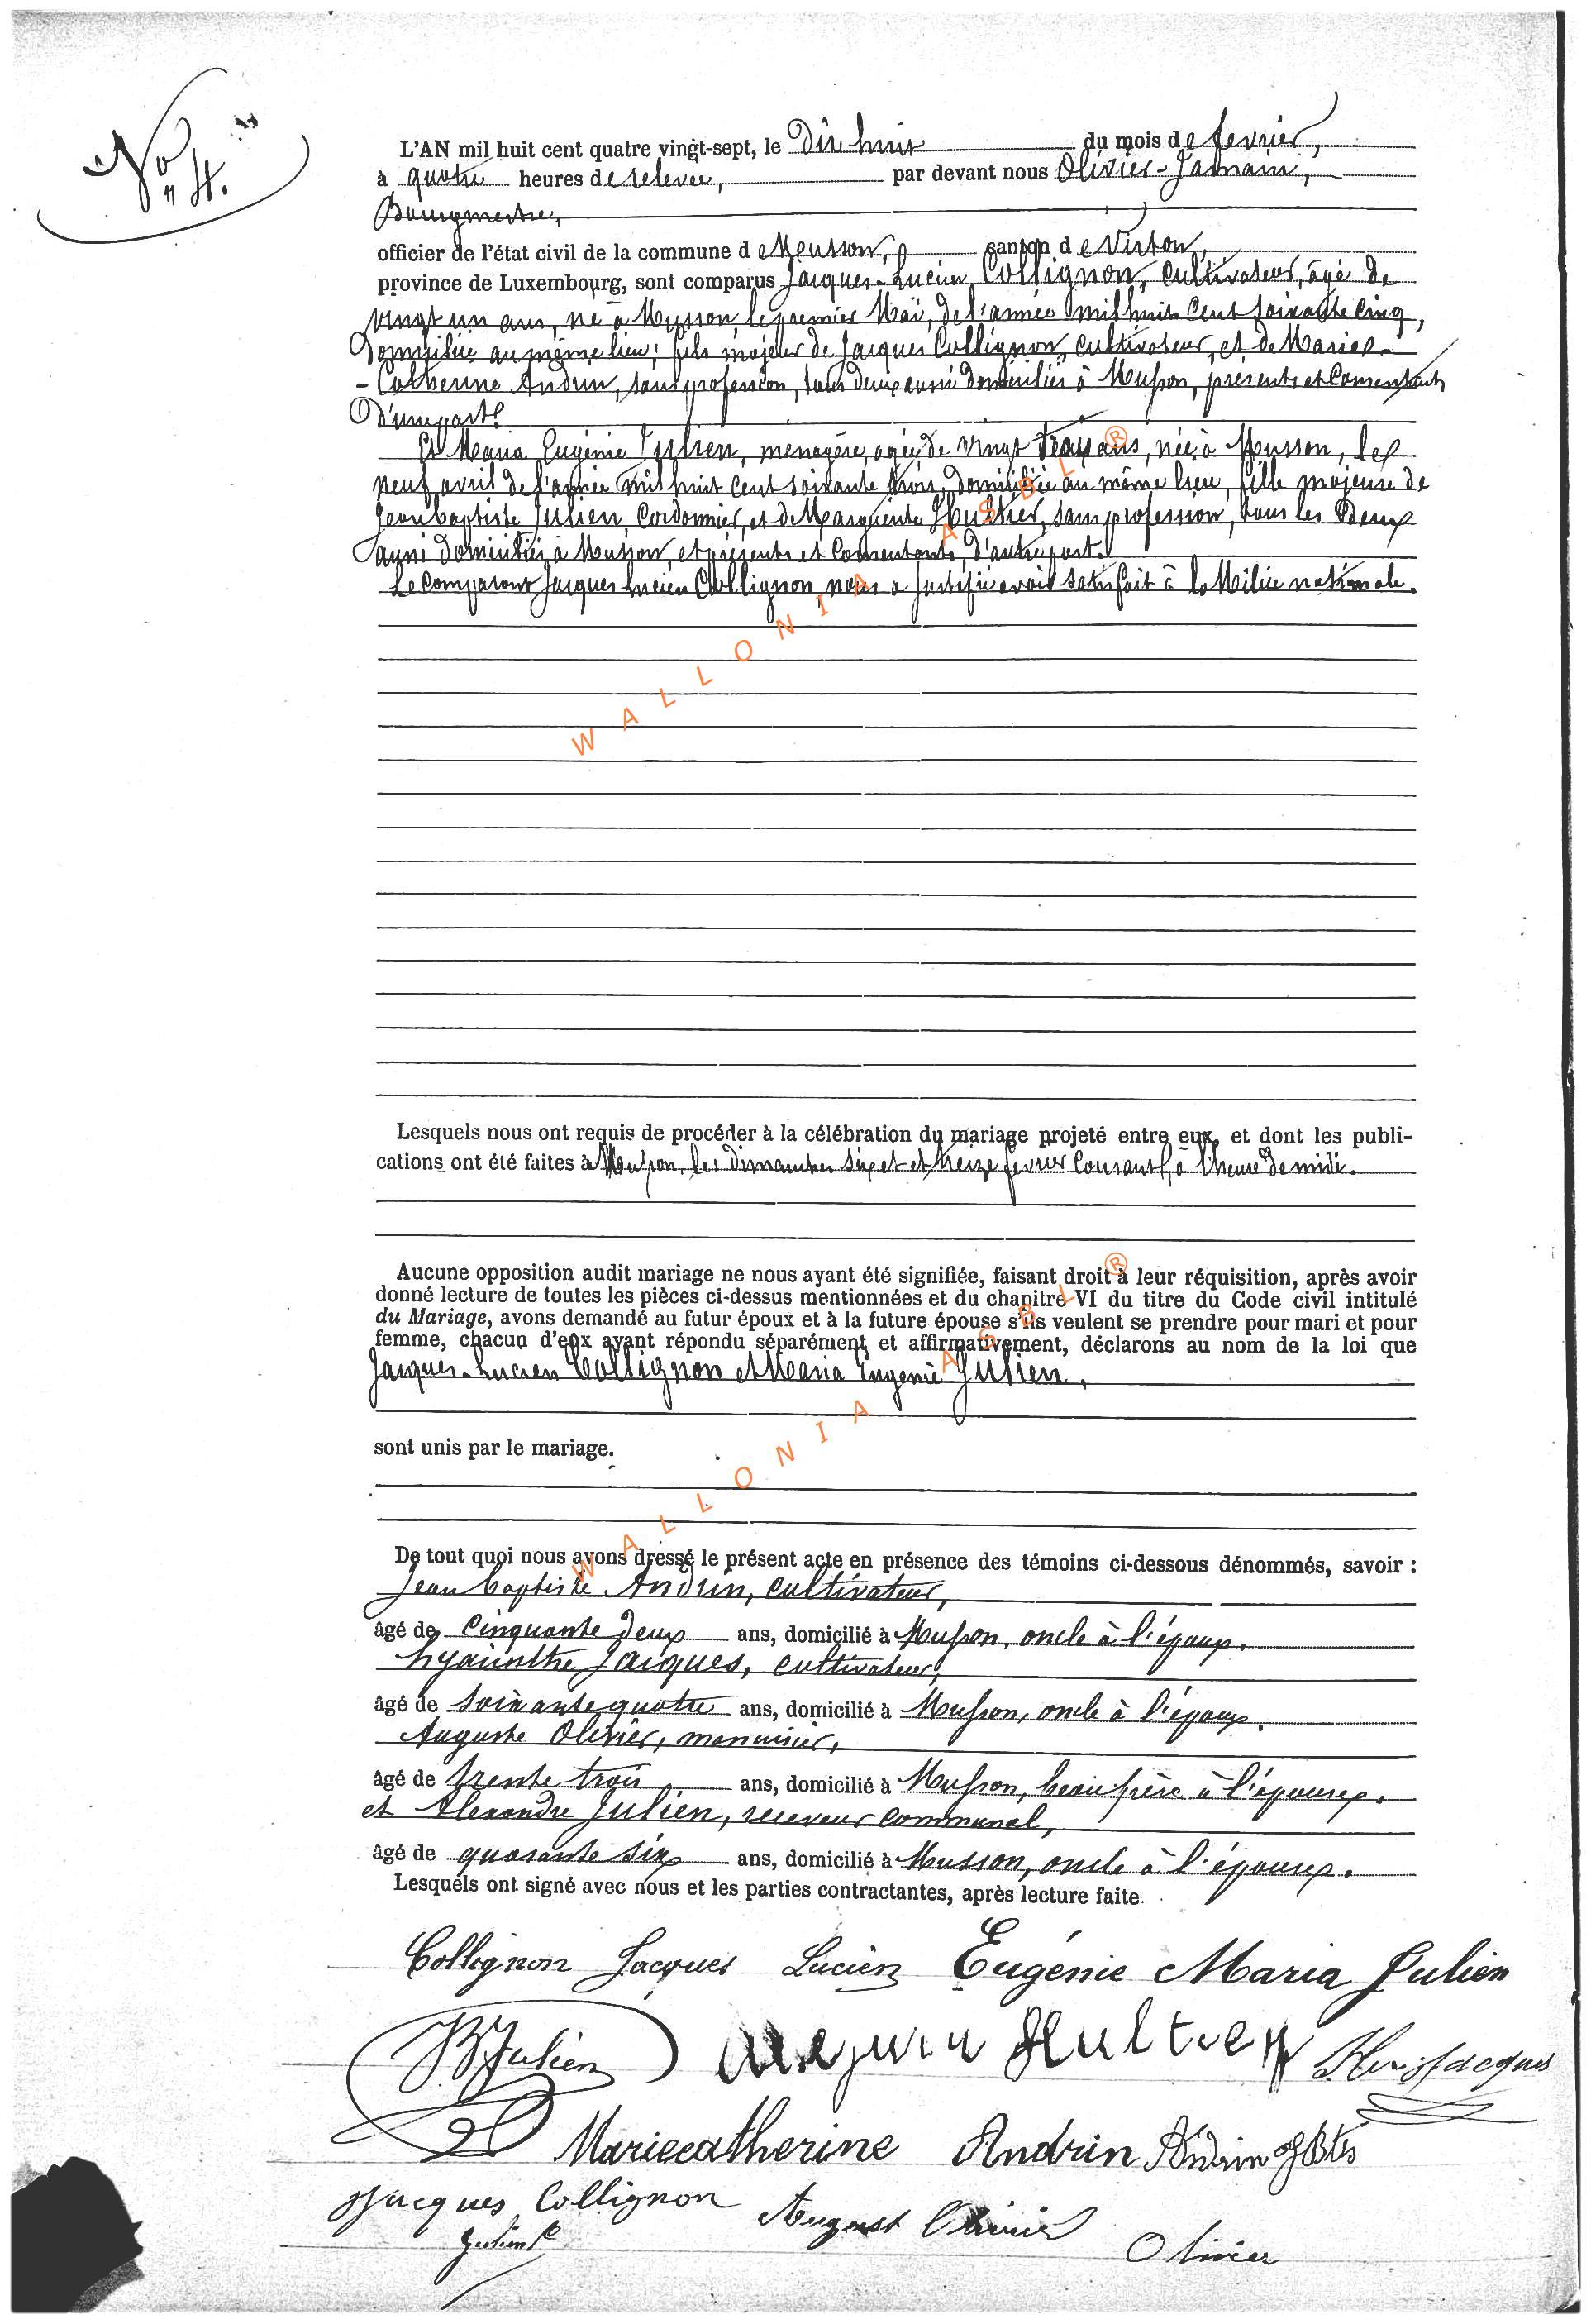 "No
"4."
L'AN mil huit cent quatre vingt-sept, le Dix huit du mois de fevrier,
à quatre heures de relevée, par devant nous Olivier-Jamain,
Bourgmestre,
officier de l'état civil de la commune de Musson, canton de Virton,
province de Luxembourg, sont comparus Jacques-Lucien Collignon, Cultivateur, âgé de
vingt un ans, né à Musson, le premier Mai, de l'année mil huit cent soixante cinq,
Domicilié au même lieu; fils majeur de Jacques Collignon, cultivateur, et de Marie-
-Catherine Andrin, sans profession, tous deux aussi domiciliés à Musson, présents et Consentants
D'une part.
Et Maria Eugénie Julien, menagère, agée de vingt trois ans, née à Musson, le
neuf avril de l'année mil huit cent soixante trois, domiciliée au même lieu, fille majeure de
Jean baptiste Julien, Cordonnier, et de Marguerite Hultier, sans profession, tous les Deux
aussi domiciliés à Musson, et présents et Consentants, D'autre part.
Le Comparant Jacques Lucien Collignon nous a justifié avoir satisfait à la Milice nationale.
Lesquels nous ont requis de procéder à la célébration du mariage projeté entre eux, et dont les publi-
cations ont été faites à Musson, les dimanches six et et treize fevrier Courant, à l'heure de midi.
Aucune opposition audit mariage ne nous ayant été signifiée, faisant droit à leur réquisition, après avoir
donné lecture de toutes les pièces ci-dessus mentionnées et du chapitre VI du titre du Code civil intitulé
du Mariage, avons demandé au futur époux et à la future épouse s'ils veulent se prendre pour mari et pour
femme, chacun d'eux ayant répondu séparément et affirmativement, déclarons au nom de la loi que
Jacques-Lucien Collignon et Maria Eugenie Julien,
sont unis par le mariage.
De tout quoi nous avons dressé le présent acte en présence des témoins ci-dessous dénommés, savoir :
Jean baptiste Andrin, cultivateur,
âgé de Cinquante deux ans, domicilié à Musson, oncle à l'époux.
hyacinthe Jacques, cultivateur,
âgé de soixante quatre ans, domicilié à Musson, oncle à l'époux.
Auguste Olivier, menuisier,
âgé de trente trois ans, domicilié à Musson, beau frère à l'épouse,
et Alexandre Julien, receveur communal,
âgé de quarante six ans, domicilié à Musson, oncle à l'épouse.
Lesquels ont signé avec nous et les parties contractantes, après lecture faite.
Collignon Jacques Lucien Eugénie Maria Julien
JB Julien Hultier Jacques
Mariecatherine Andrin Andrin JBte
Jacques Collignon August Olivier
Julien Olivier
WALLONIA ASBL ®
WALLONIA ASBL ®